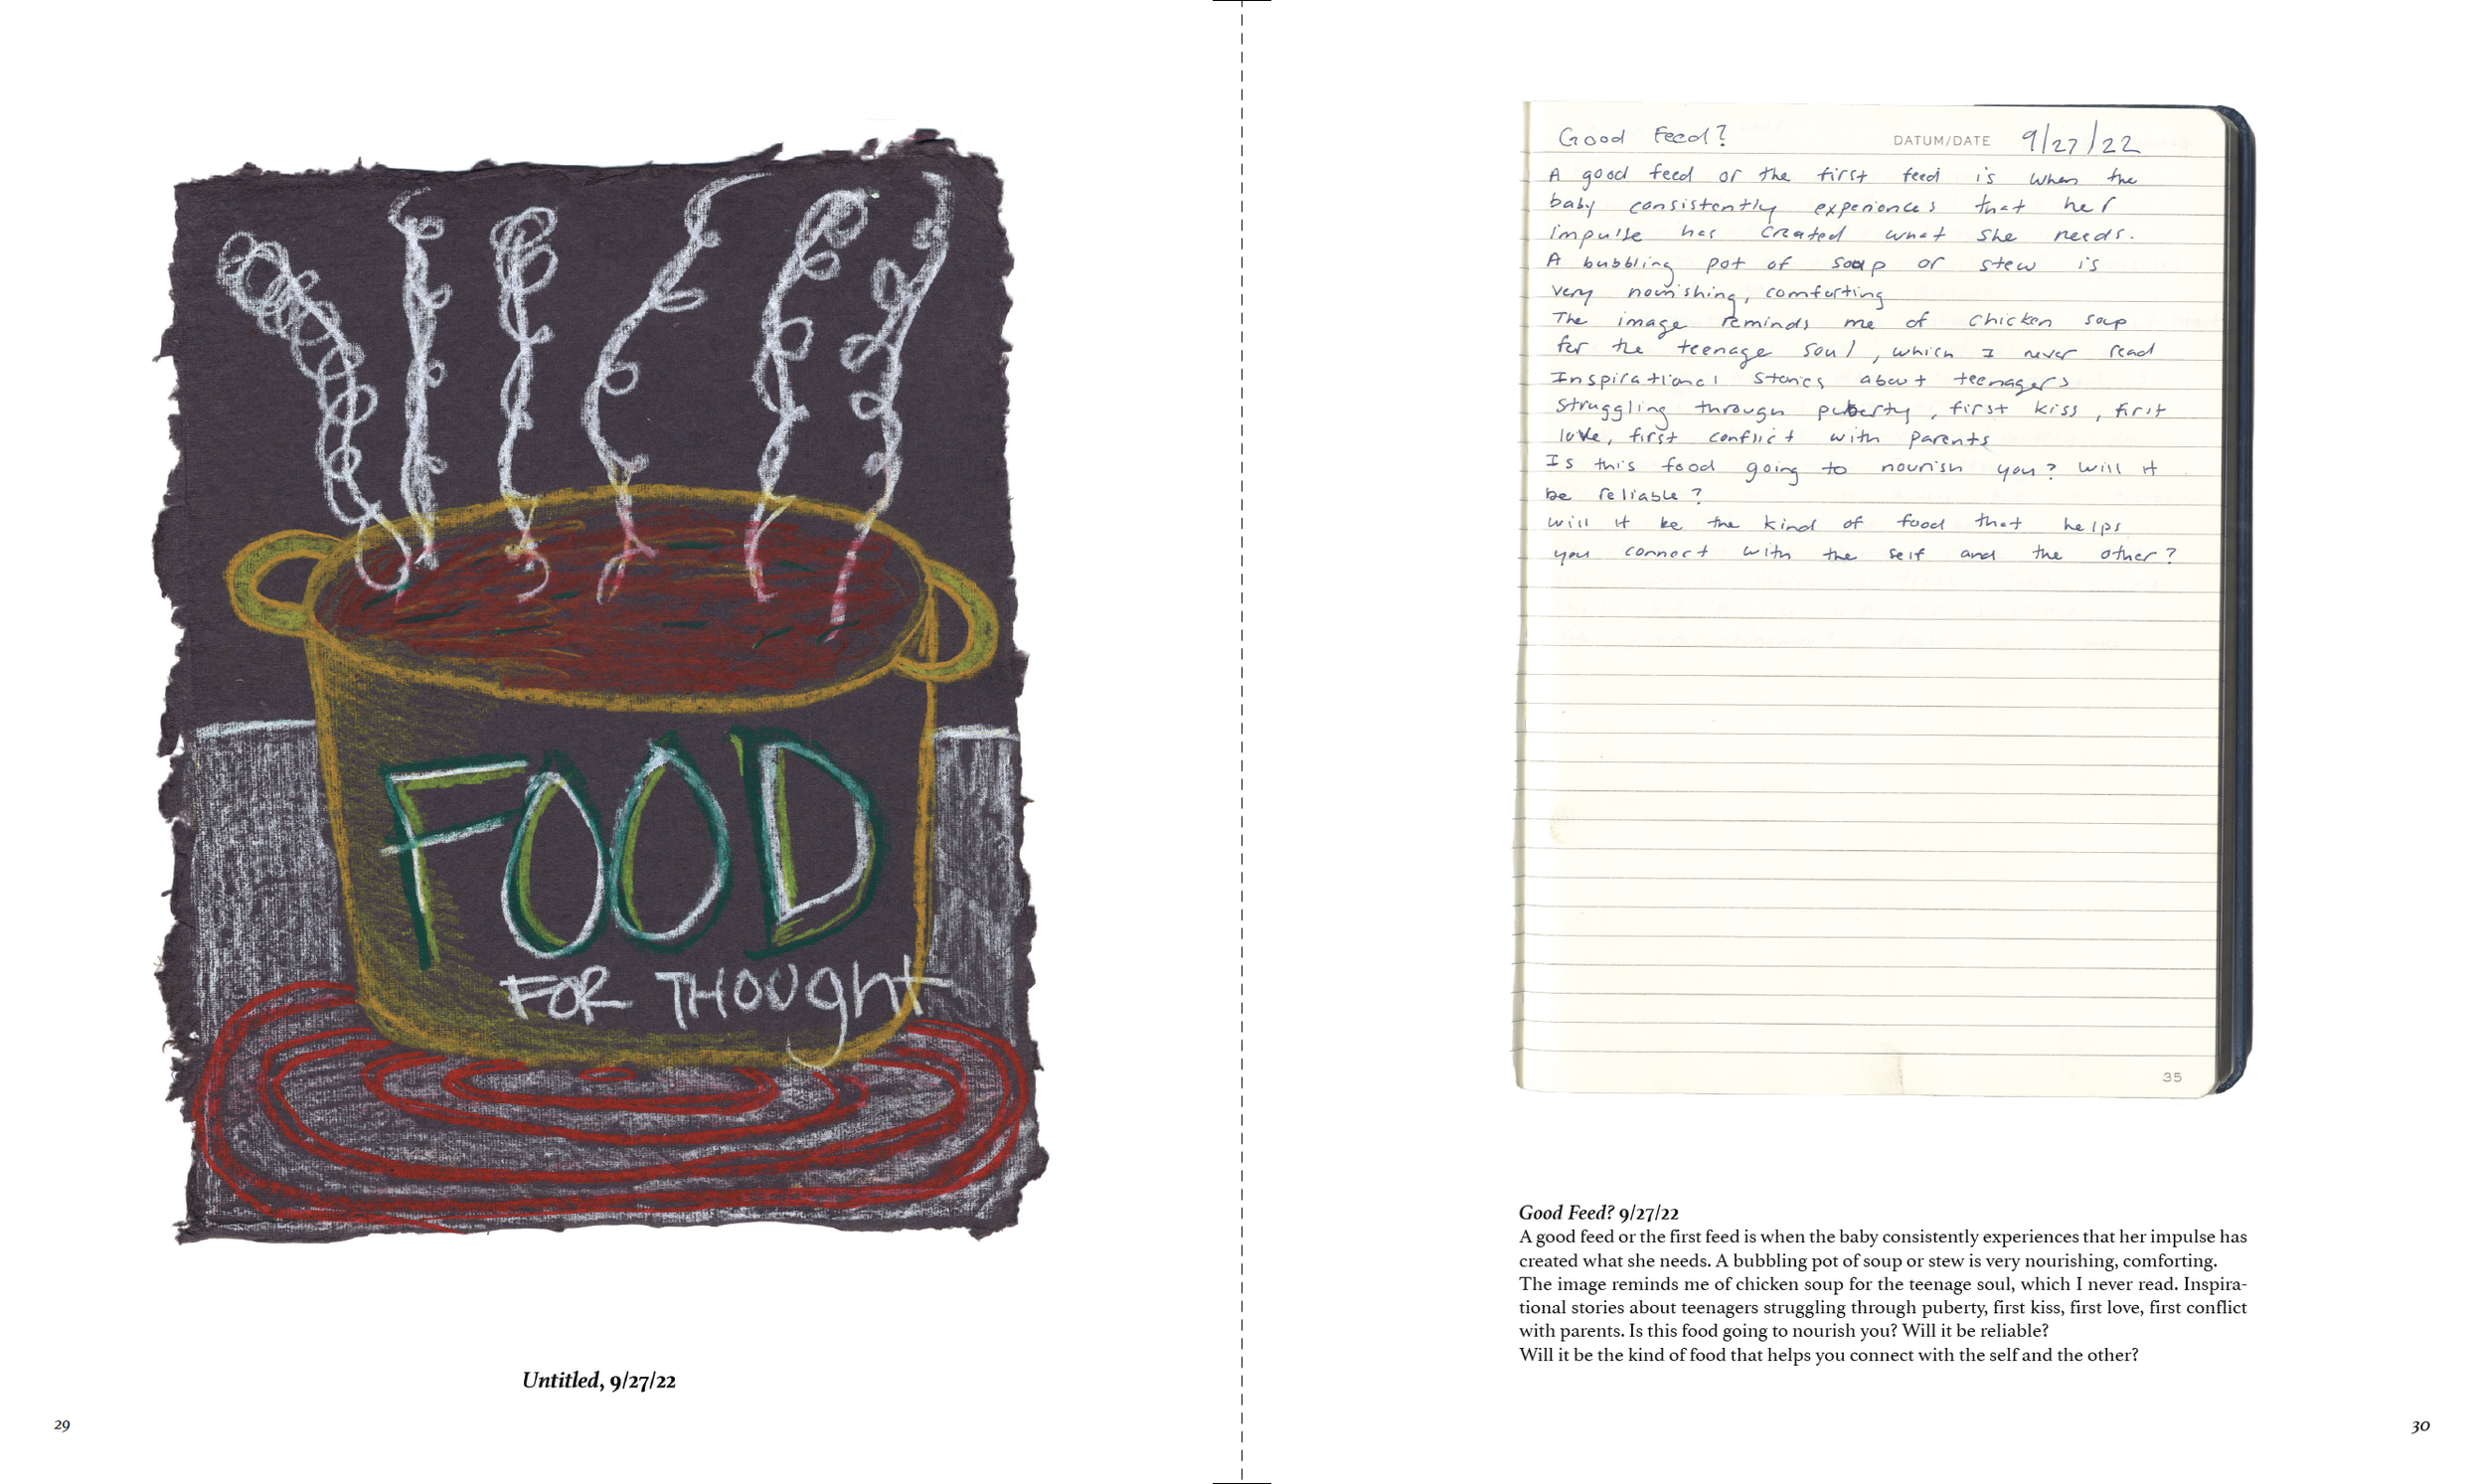 FOOD
FOR THOUght
Untitled, 9/27/22
29
Good Feed?
DATUM/DATE 9/27/22
A good feed or the first feed is when the
baby consistently experiences that her
impulse has created what she needs.
A bubbling pot of soup or stew is
very nourishing, comforting
The image reminds me of chicken soup
for the teenage soul, which I never read
Inspirational stories about teenagers
struggling through puberty, first kiss, first
love, first conflict with parents
Is this food going to nourish you? Will it
be reliable?
Will it be the kind of food that helps
you connect with the self and the other?
35
Good Feed? 9/27/22
A good feed or the first feed is when the baby consistently experiences that her impulse has
created what she needs. A bubbling pot of soup or stew is very nourishing, comforting.
The image reminds me of chicken soup for the teenage soul, which I never read. Inspira-
tional stories about teenagers struggling through puberty, first kiss, first love, first conflict
with parents. Is this food going to nourish you? Will it be reliable?
Will it be the kind of food that helps you connect with the self and the other?
30